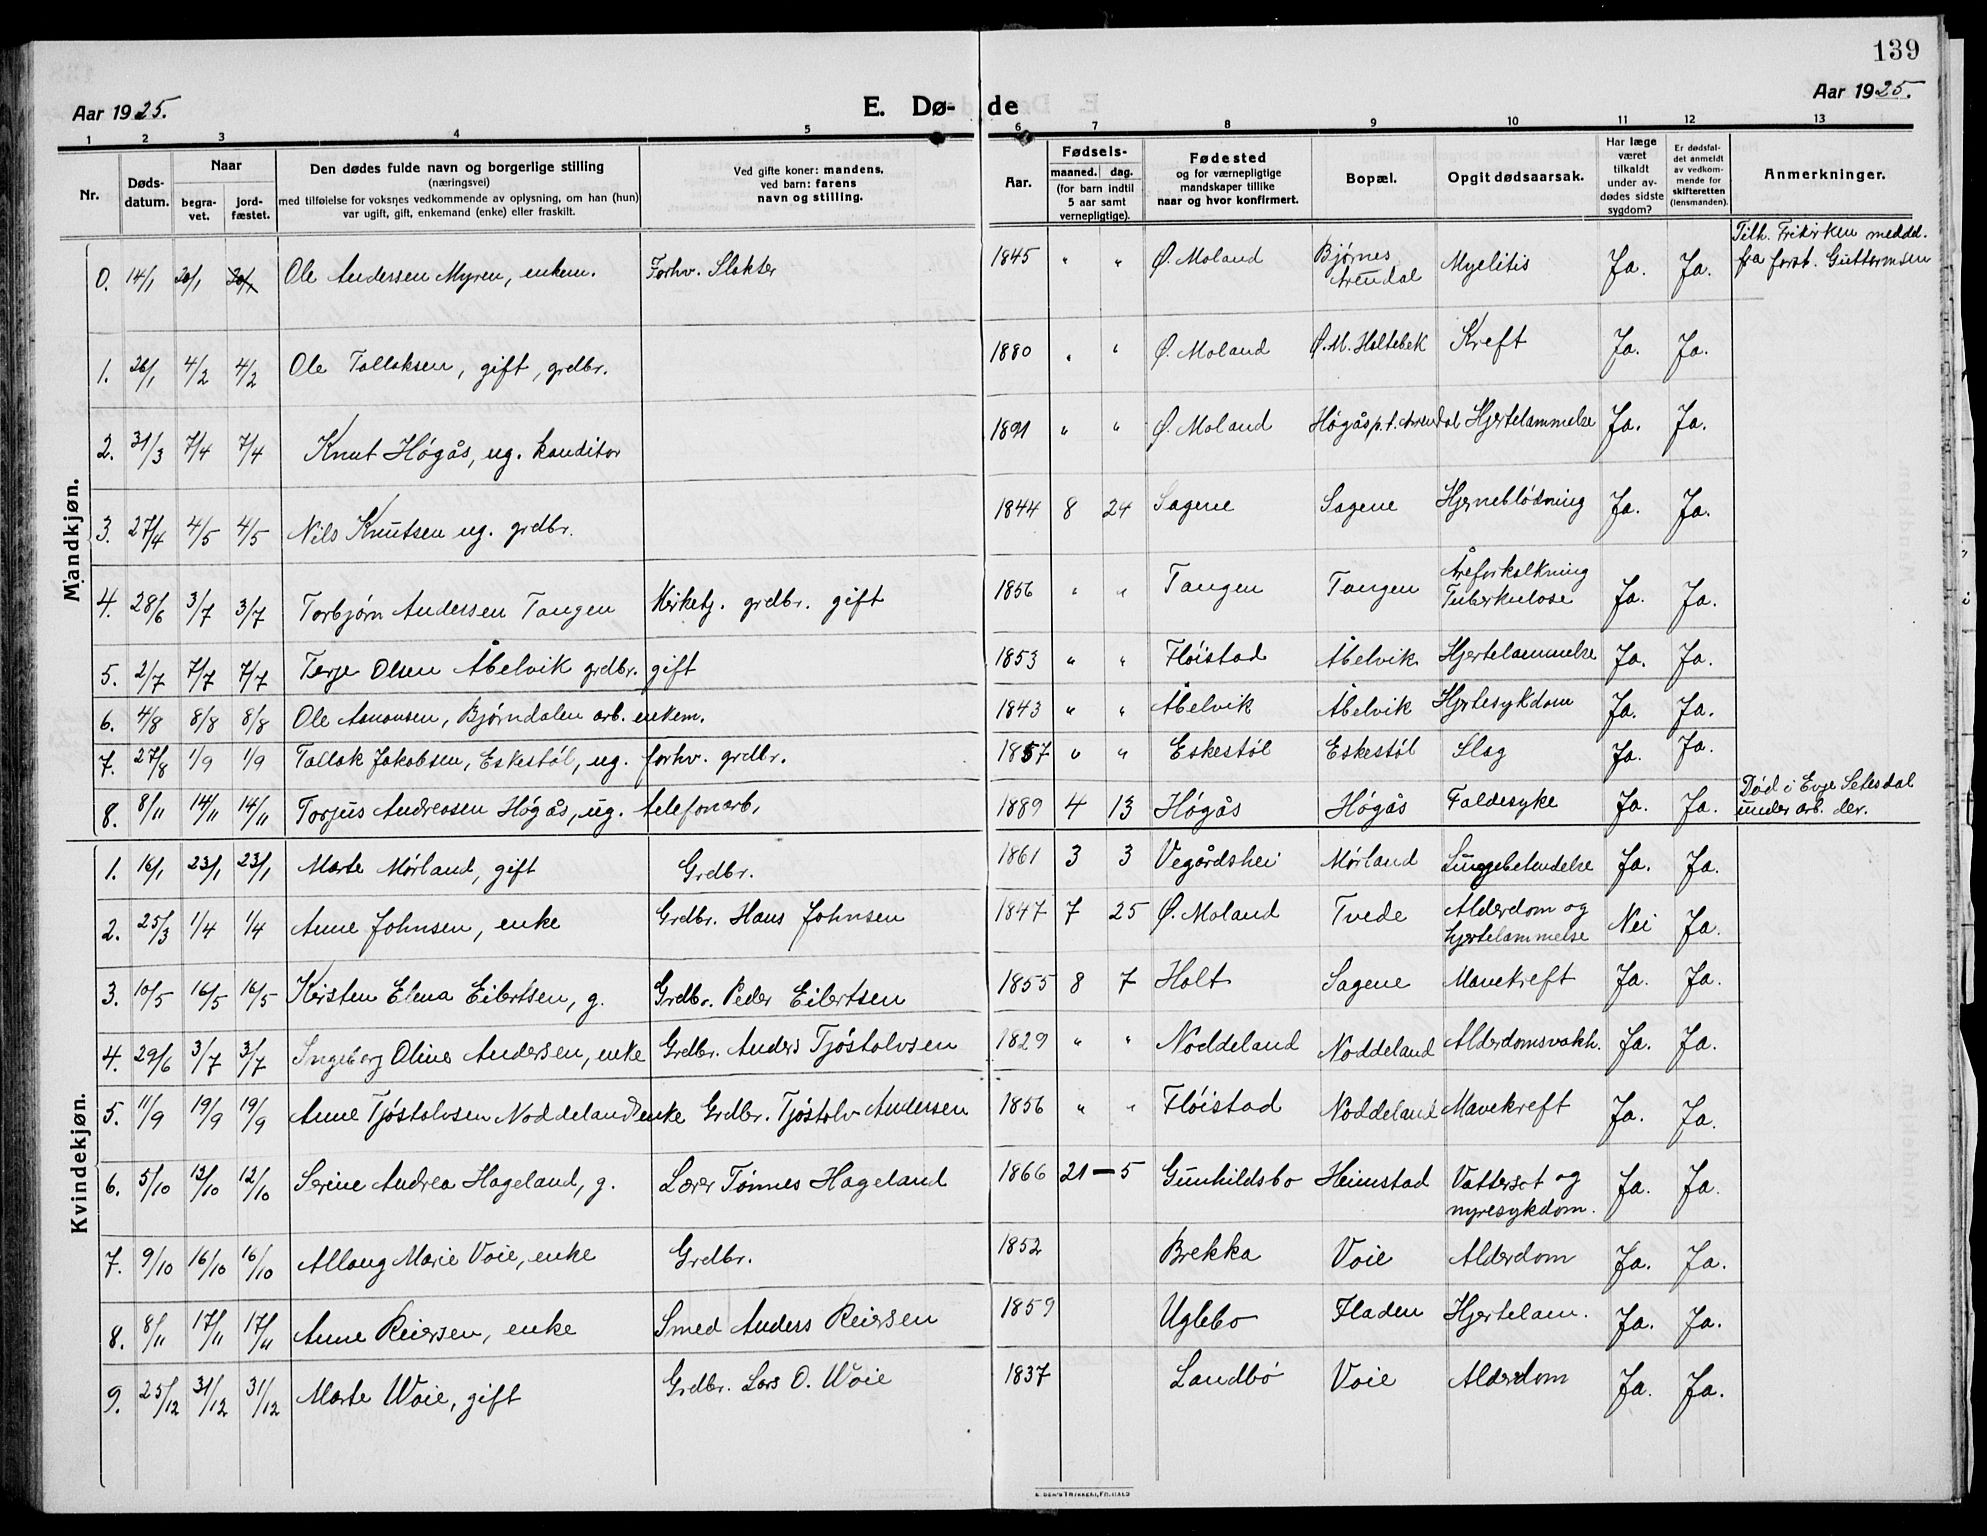 139
Aar 1925.
E. Dø- de
Aar 1925.
1 2 3 4 5 6 7 8 9 10 11 12 13
Nr. Døds-datum. Naar begra-vet. jord-fæstet. Den dødes fulde navn og borgerlige stilling (næringsvei) med tilføielse for voksnes vedkommende av oplysning, om han (hun) var ugift, gift, enkemand (enke) eller fraskilt. Ved gifte koner: mandens, ved barn: farens navn og stilling. Aar. Fødsels- maaned. dag. (for barn indtil 5 aar samt vernepligtige). Fødested og for værnepligtige mandskaper tillike naar og hvor konfirmert. Bopæl. Opgit dødsaarsak. Har læge været tilkaldt under av-dødes sidste sygdom? Er dødsfal-det anmeldt av vedkom-mende for skifteretten (lensmanden). Anmerkninger.
Mandkjøn.
0. 14/1 20/1 20/1 Ole Andersen Myren, enkem. Forhv. Slakter 1845 " " Ø. Moland Bjørnes Arendal Myelitis Ja. Ja. Tilh. Frikirken meddd. fra forst. Guttormsen
1. 26/1 4/2 4/2 Ole Tallaksen, gift, grdbr. 1880 " " Ø. Moland Ø. M. Holtebek Kreft Ja. Ja.
2. 31/3 7/4 7/4 Knut Högås, ug. konditor 1891 " " Ø. Moland Högås p.t. Arendal Hjertelammelse Ja. Ja.
3. 27/4 4/5 4/5 Nils Knutsen ug. grdbr. 1844 8 24 Sagene Sagene Hjerneblödning Ja. Ja.
4. 28/6 3/7 3/7 Torbjørn Andersen Tangen Kirketj. grdbr. gift 1856 " " Tangen Tangen Åreforkalkning Tuberkulose Ja. Ja.
5. 2/7 7/7 7/7 Terje Olsen Åbelvik grdbr. gift 1853 " " Flöistad Åbelvik Hjertelammelse Ja. Ja.
6. 4/8 8/8 8/8 Ole Aanonsen, Bjørndalen arb. enkem. 1843 " " Åbelvik Åbelvik Hjertesykdom Ja. Ja.
7. 27/8 1/9 1/9 Tallak Jakobsen, Eskestöl, ug. forhv. grdbr. 1857 " " Eskestöl Eskestöl Slag Ja. Ja.
8. 8/11 14/11 14/11 Torjus Andreasen Högås, ug. telefonarb. 1889 4 13 Högås Högås Faldesyke Ja. Ja. Död i Evje Setesdal under arb. der.
Kvindekjøn.
1. 16/1 23/1 23/1 Marte Mörland, gift Grdbr. 1861 3 3 Vegårdshei Mørland Lungebetendelse Ja. Ja.
2. 25/3 1/4 1/4 Anne Johnsen, enke Grdbr. Hans Johnsen 1847 7 25 Ø. Moland Tvede Alderdom og hjertelammelse Nei Ja.
3. 10/5 16/5 16/5 Kirsten Elena Eilertsen, g. Grdbr. Peder Eilertsen 1855 8 7 Holt Sagene Mavekreft Ja. Ja.
4. 29/6 3/7 3/7 Ingeborg Oline Andersen, enke Grdbr. Anders Tjöstolvsen 1829 " " Noddeland Noddeland Alderdomsvakh. Ja. Ja.
5. 11/9 19/9 19/9 Anne Tjöstolvsen Noddeland enke Grdbr. Tjöstolv Andersen 1856 " " Flöistad Noddeland Mavekreft Ja. Ja.
6. 5/10 12/10 12/10 Serine Andrea Hageland, g. Lærer Tönnes Hageland 1866 21 – 5 Gunhildsbo Heimstad Vattersot og nyresykdom. Ja. Ja.
7. 9/10 16/10 16/10 Allaug Marie Voie, enke Grdbr. 1852 Brekka Voie Alderdom Ja. Ja.
8. 8/11 17/11 17/11 Anne Reiersen, enke Smed Anders Reiersen 1859 Uglebo Fladen Hjertelam. Ja. Ja.
9. 25/12 31/12 31/12 Marte Woie, gift Grdbr. Lars O. Woie 1837 Landbö Voie Alderdom Ja. Ja.